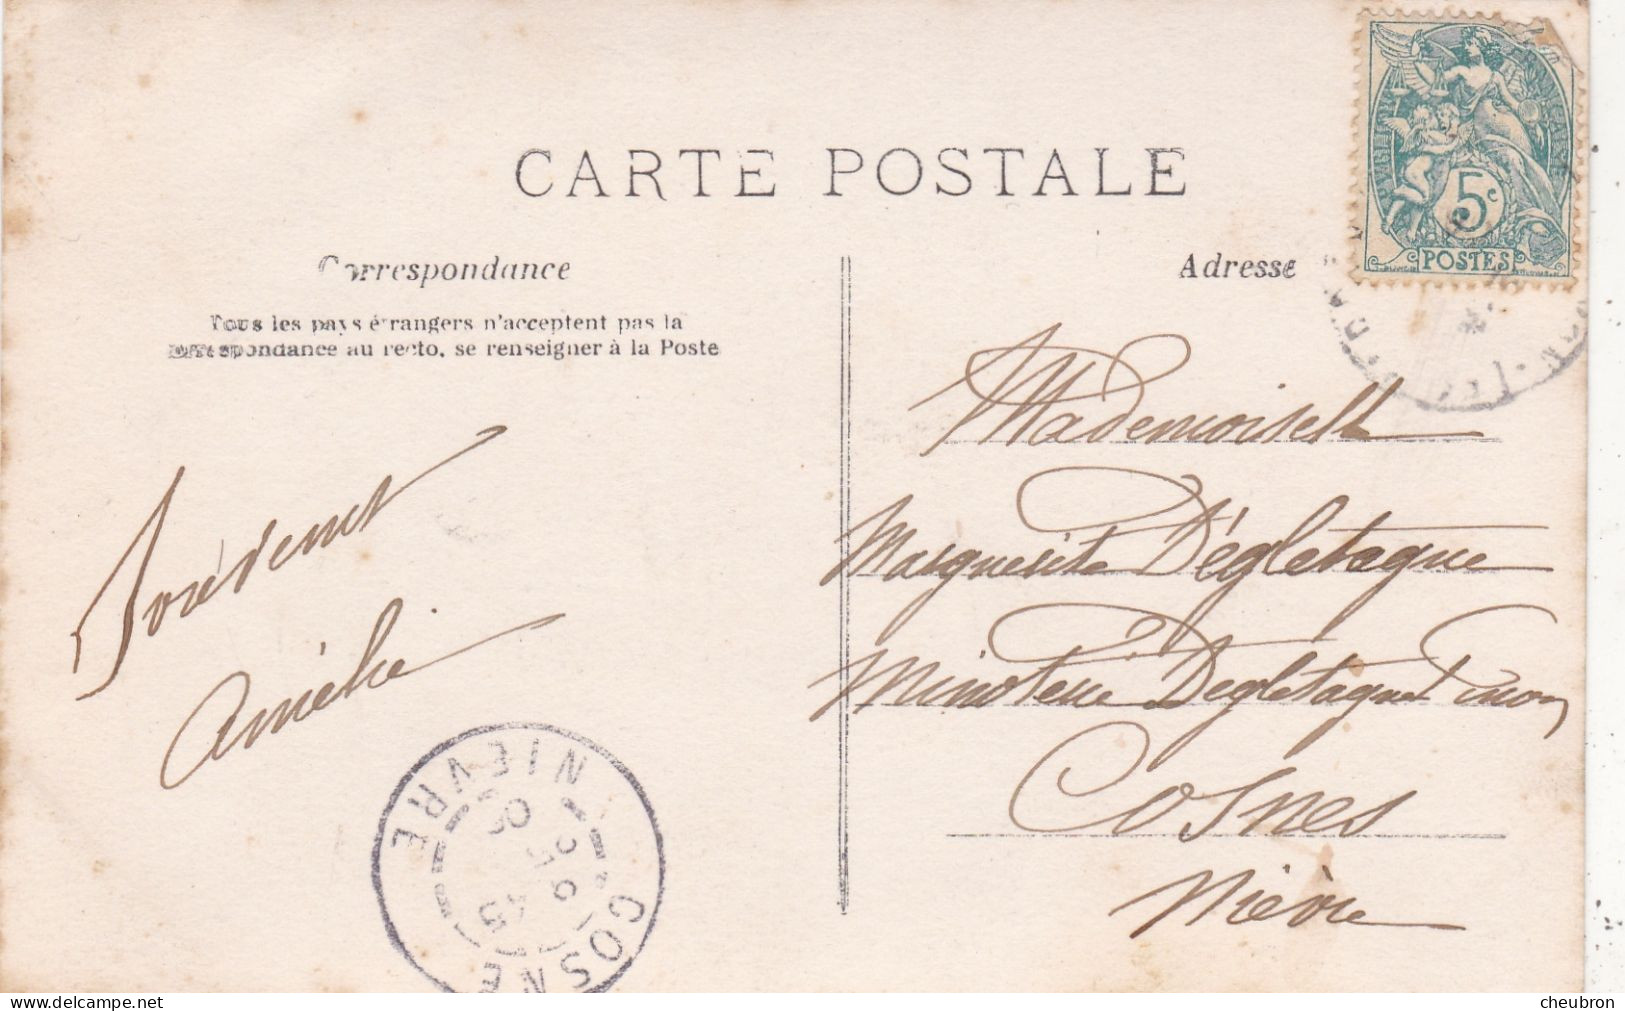 CARTE POSTALE
Correspondance
Tous les pays étrangers n'acceptent pas la
correspondance au recto, se renseigner à la Poste
Amélie
Adresse
Mademoiselle
Marguerite Dégletagne
Minoterie Degletagne
Cosnes
Nièvre
5c
POSTES
COSNE
NIEVRE
cheubron